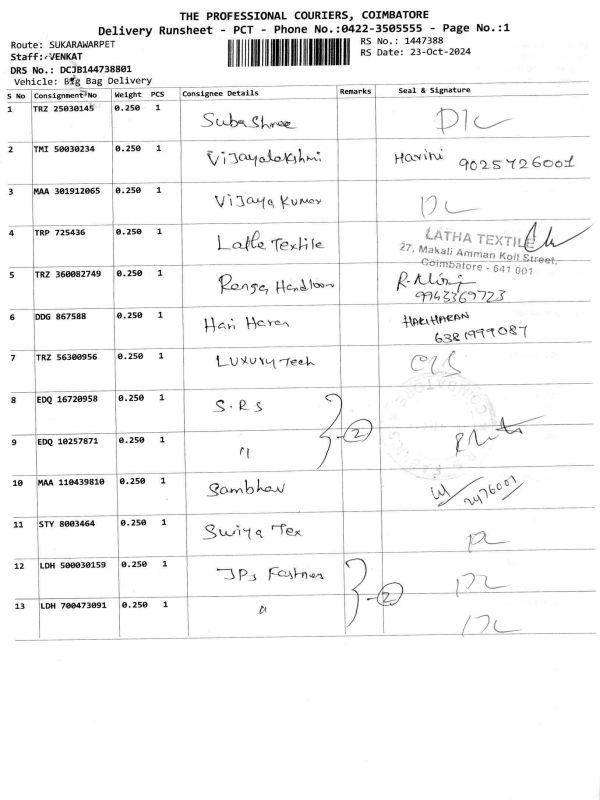 THE PROFESSIONAL COURIERS, COIMBATORE
Delivery Runsheet - PCT - Phone No.:0422-3505555 - Page No.:1
Route: SUKARAWARPET
RS No.: 1447388
Staff: VENKAT
RS Date: 23-Oct-2024
DRS No.: DCJB144738801
Vehicle: Big Bag Delivery
S No Consignment No Weight PCS Consignee Details Remarks Seal & Signature
1 TRZ 25030145 0.250 1 Suba Shree D/C
2 TMI 50030234 0.250 1 Vijayalakshmi Harini 9025726001
3 MAA 301912065 0.250 1 Vijaya Kumar DC
4 TRP 725436 0.250 1 Latha Textile
LATHA TEXTILE
27, Makali Amman Koil Street,
Coimbatore - 641 001
5 TRZ 360082749 0.250 1 Handloom
9943369723
6 DDG 867588 0.250 1 Hari Haran HARIHARAN
6381999087
7 TRZ 56300956 0.250 1 Luxury Tech
8 EDQ 16720958 0.250 1 S.R.S
2
9 EDQ 10257871 0.250 1 "
10 MAA 110439810 0.250 1 Sambhav
11 STY 8003464 0.250 1 Tex DC
12 LDH 500030159 0.250 1 JPs Fastners DC
2
13 LDH 700473091 0.250 1 " DC